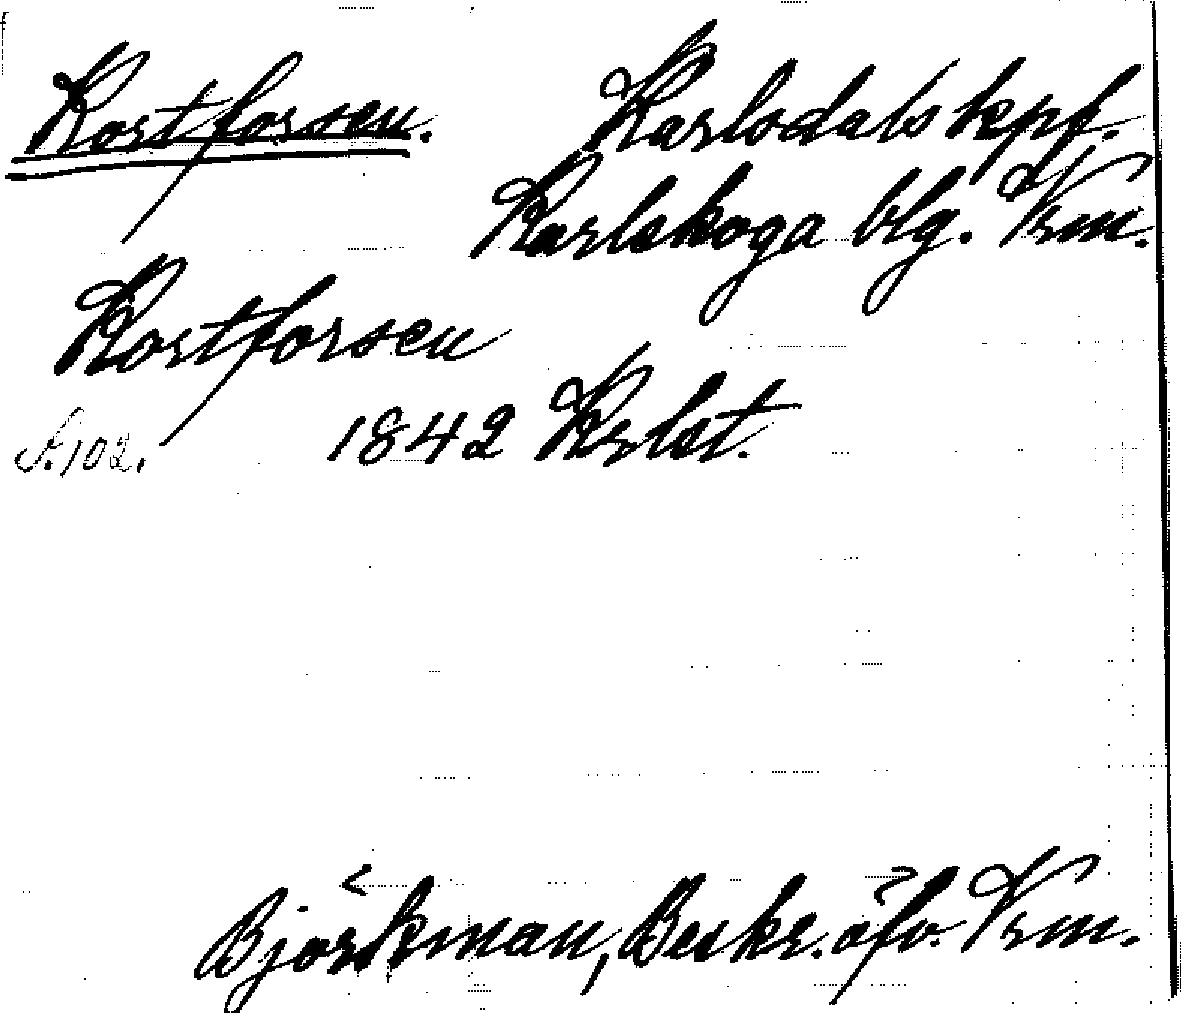 Kortforsen. Karlsdals kpf.
Karlskoga blg. Vrm.
Kortforsen
S. 102. 1842 Krlst.
Björkman, Beskr. öfv. Vrm.